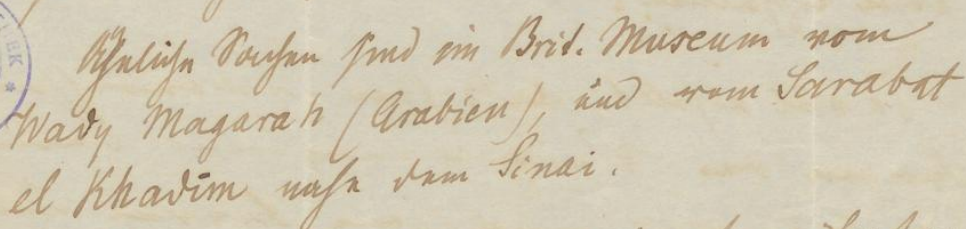 Ähnliche Sachen sind im Brit. Museum vom
Wady Magarah (Arabien), und vom Sarabat
el Khadim nahe dem Sinai.